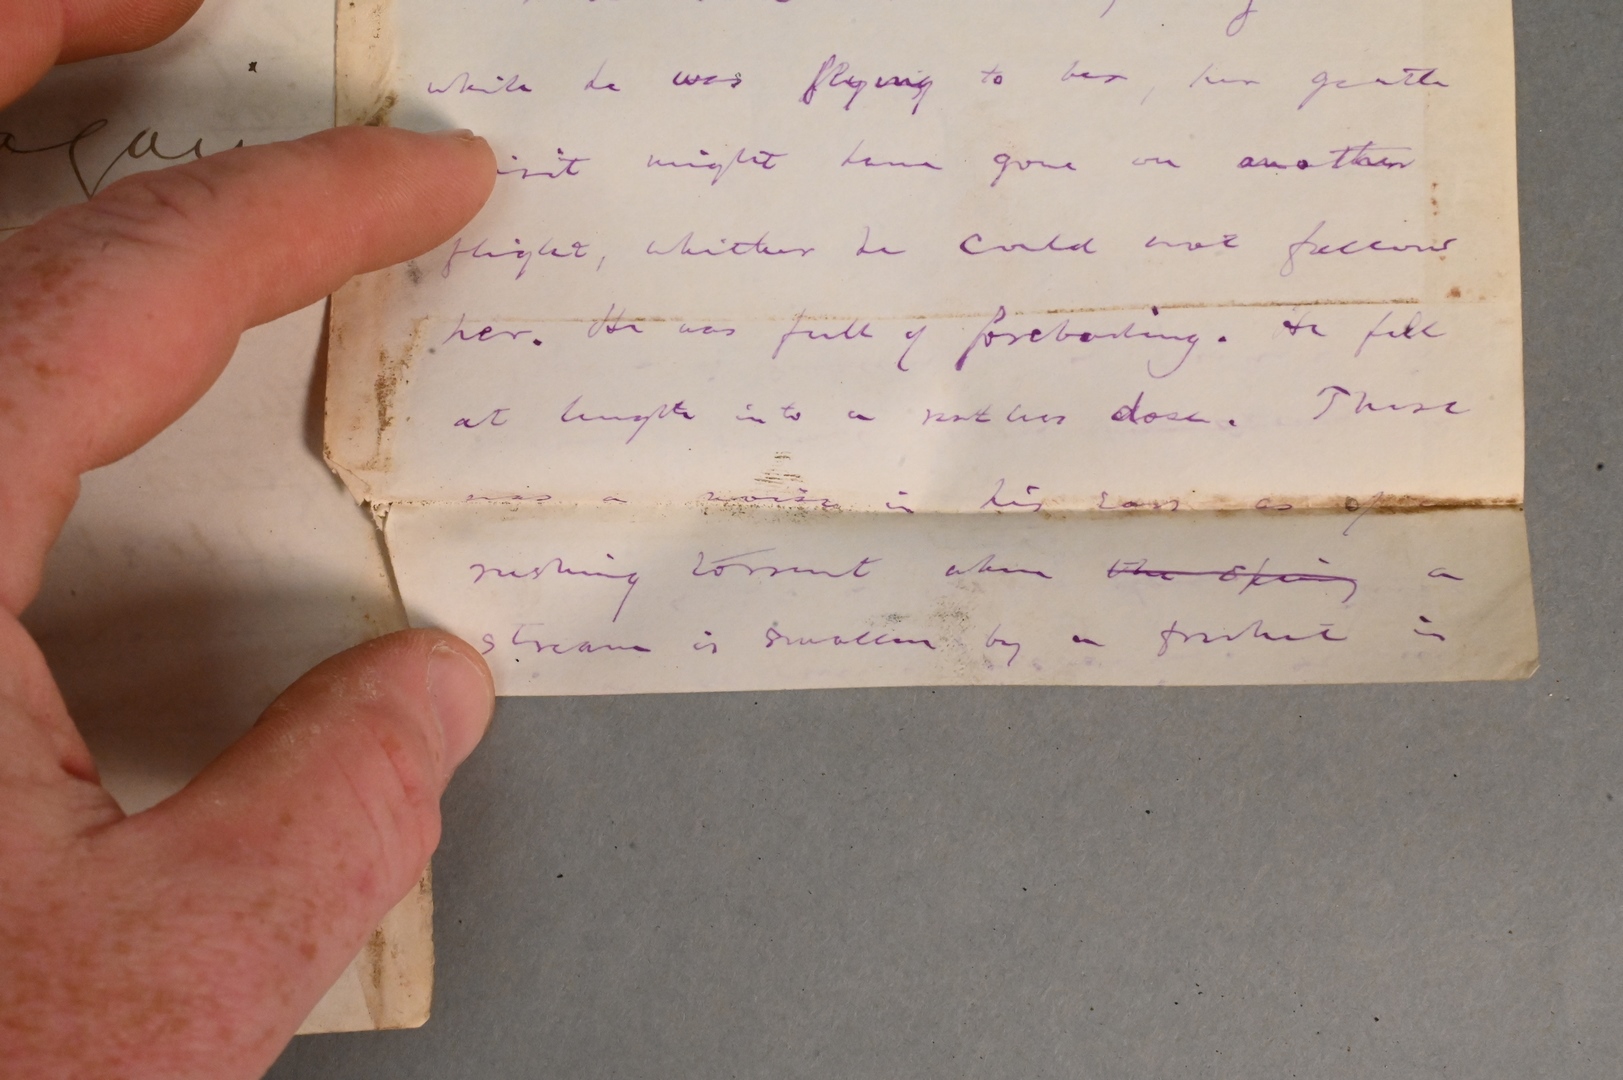 while he was flying to her, her gentle
spirit might have gone on another
flight, whither he could not follow
her. He was full of foreboding. He fell
at length into a restless dose. There
was a noise in his ears as of a
rushing torrent when the spring a
stream is swollen by a freshet in